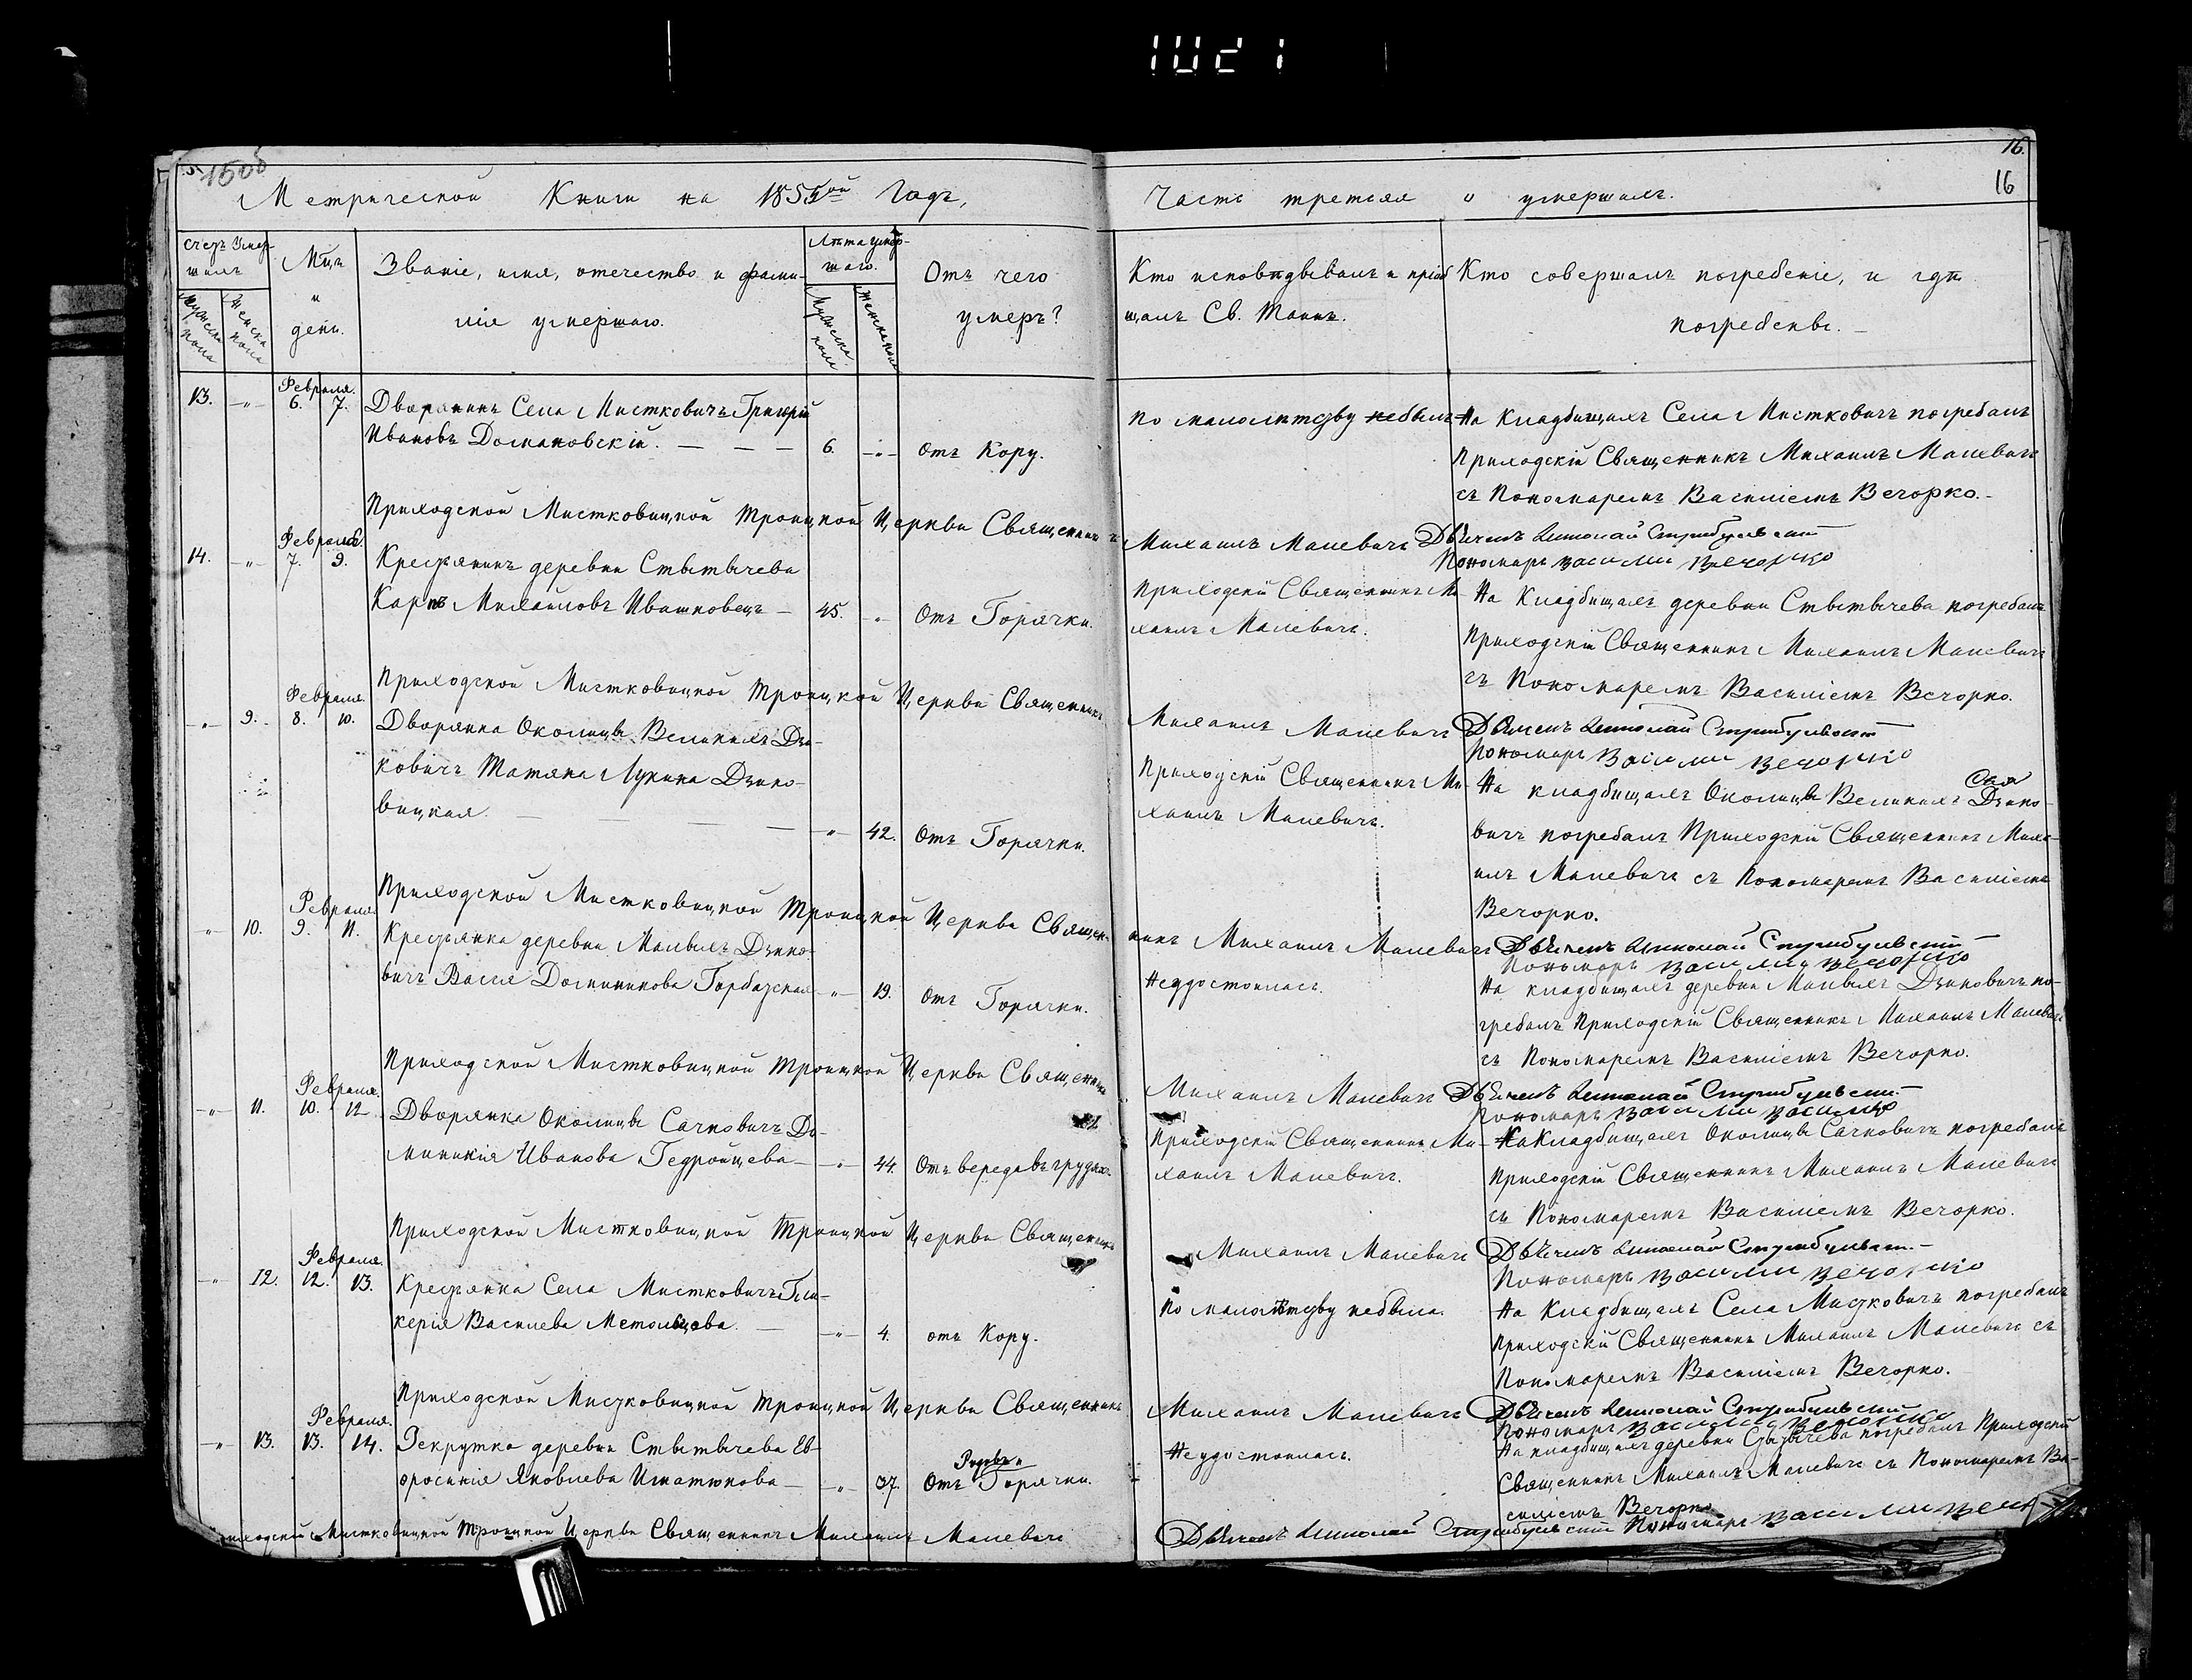 1021
1500
16.
16
Метрической Книги на 1855ой Годъ,
Часть третья о умершихъ.
Счетъ Умершихъ
Мужеска пола
Женска пола
Мцъ и день.
Званіе, имя, отечество и фами-
лія умершаго.
Лѣта умер-
шаго.
Мужеска пола
Женска пола
Отъ чего
умеръ?
Кто исповѣдывалъ и пріоб
щалъ Св. Таинъ.
Кто совершалъ погребеніе, и гдѣ
погребены.
Февраля.
13. 6. 7. Дворянинъ Села Мистковичъ Григорій
Ивановъ Домановскій. 6. Отъ Кору.
По малолѣтству небылъ
На Кладбищахъ Села Мистковичъ погребалъ
Приходскій Священникъ Михаилъ Малевичъ
съ Пономаремъ Василіемъ Вечорко.
Приходской Мистковицкой Троицкой Церкви Священникъ Михаилъ Малевичъ Дьячекъ Николай
Пономарь Василій Вечорко
Февраля.
14. 7. 9. Крестьянинъ деревни Стытычева
Карпъ Михайловъ Ивашковецъ 45. Отъ Горячки.
Приходскій Священникъ Ми-
хаилъ Малевичъ.
На Кладбищахъ деревни Стытычева погребалъ
Приходскій Священникъ Михаилъ Малевичъ
съ Пономаремъ Василіемъ Вечорко.
Приходской Мистковицкой Троицкой Церкви Священникъ Михаилъ Малевичъ Дьячекъ Николай
Пономарь Василій Вечорко
Февраля.
9. 8. 10. Дворянка Околицы Великихъ Дзи-
ковичъ Татяна Лукина Дзико-
вицкая. 42. Отъ Горячки.
Приходскій Священникъ Ми-
хаилъ Малевичъ.
На кладбищахъ Околицы Великихъ Дзико-
вичъ погребалъ Приходскій Священникъ Миха-
илъ Малевичъ съ Пономаремъ Василіемъ
Вечорко.
Приходской Мистковицкой Троицкой Церкви Священ-
никъ Михаилъ Малевичъ Дьячекъ Николай
Пономарь Василій Вечорко
Февраля.
10. 9. 11. Крестьянка деревни Малыхъ Дзико-
вичъ Васса Доминикова Горбацкая 19. Отъ Горячки.
Неудостоилась.
На кладбищахъ деревни Малыхъ Дзиковичъ по-
гребалъ Приходскій Священникъ Михаилъ Малевичъ
съ Пономаремъ Василіемъ Вечорко.
Приходской Мистковицкой Троицкой Церкви Священникъ
Михаилъ Малевичъ Дьячекъ Николай
Пономарь Василій
Февраля.
11. 10. 12 Дворянка Околицы Сачковичъ До-
миникія Иванова Гедройцева 44. Отъ вереда въ грудяхъ.
Приходскій Священникъ Ми-
хаилъ Малевичъ.
На Кладбищахъ Околицы Сачковичъ погребалъ
Приходскій Священникъ Михаилъ Малевичъ
съ Пономаремъ Василіемъ Вечорко.
Приходской Мистковицкой Троицкой Церкви Священникъ
Михаилъ Малевичъ Дьячекъ Николай
Пономарь Василій Вечорко
Февраля.
12. 12. 13. Крестьянка Села Мистковичъ Гли-
керія Василева 4. отъ Кору.
По малолѣтству небыла.
На Кладбищахъ Села Мистковичъ погребалъ
Приходскій Священникъ Михаилъ Малевичъ съ
Пономаремъ Василіемъ Вечорко.
Приходской Мистковицкой Троицкой Церкви Священникъ
Михаилъ Малевичъ Дьячекъ Николай
Пономарь Василій Вечорко
Февраля.
13. 13. 14. Рекрутка деревни Стытычева Ев-
фросинія Яковлева Игнатюкова 37. Отъ Горячки.
Неудостоилась.
На кладбищахъ деревни Стытычева погребалъ Приходскій
Священникъ Михаилъ Малевичъ съ Пономаремъ Ва-
силіемъ Вечорко
Приходской Мистковицкой Троицкой Церкви Священникъ Михаилъ Малевичъ
Дьячекъ Николай Пономарь Василій